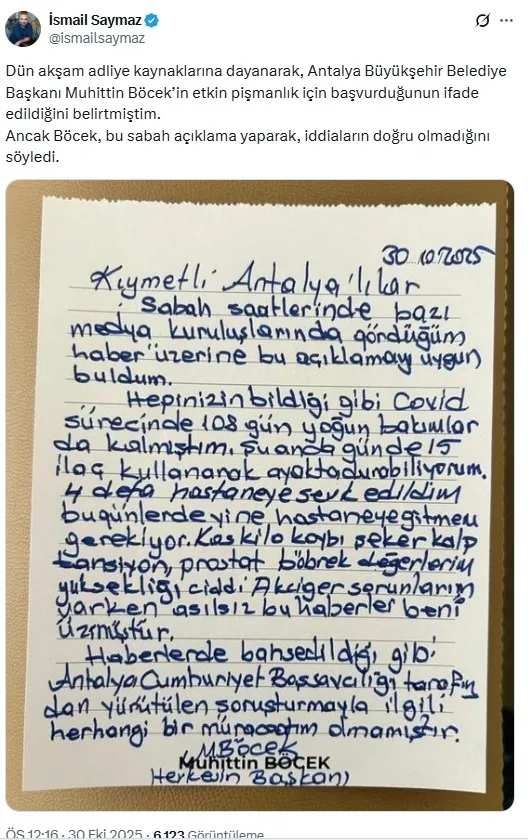 İsmail Saymaz
@ismailsaymaz
Dün akşam adliye kaynaklarına dayanarak, Antalya Büyükşehir Belediye
Başkanı Muhittin Böcek'in etkin pişmanlık için başvurduğunun ifade
edildiğini belirtmiştim.
Ancak Böcek, bu sabah açıklama yaparak, iddiaların doğru olmadığını
söyledi.
30.10.2025
Kıymetli Antalya'lılar
Sabah saatlerinde bazı
medya kuruluşlarında gördüğüm
haber üzerine bu açıklamayı uygun
buldum.
Hepinizin bildiği gibi Covid
sürecinde 108 gün yoğun bakımlar
da kalmıştım. Şu anda günde 15
ilaç kullanarak ayakta durabiliyorum.
4 defa hastaneye sevk edildim
bugünlerde yine hastaneye gitmem
gerekiyor. Kas kilo kaybı şeker kalp
tansiyon, prostat böbrek değerlerim
yüksekliği ciddi Akciğer sorunlarım
varken asılsız bu haberler beni
üzmüştür.
Haberlerde bahsedildiği gibi
Antalya Cumhuriyet Başsavcılığı tarafın
dan yürütülen soruşturmayla ilgili
herhangi bir müracatım olmamıştır.
M.Böcek
Muhittin BÖCEK
Herkesin Başkanı
ÖS 12:16 · 30 Eki 2025 · 6.123 Görüntüleme